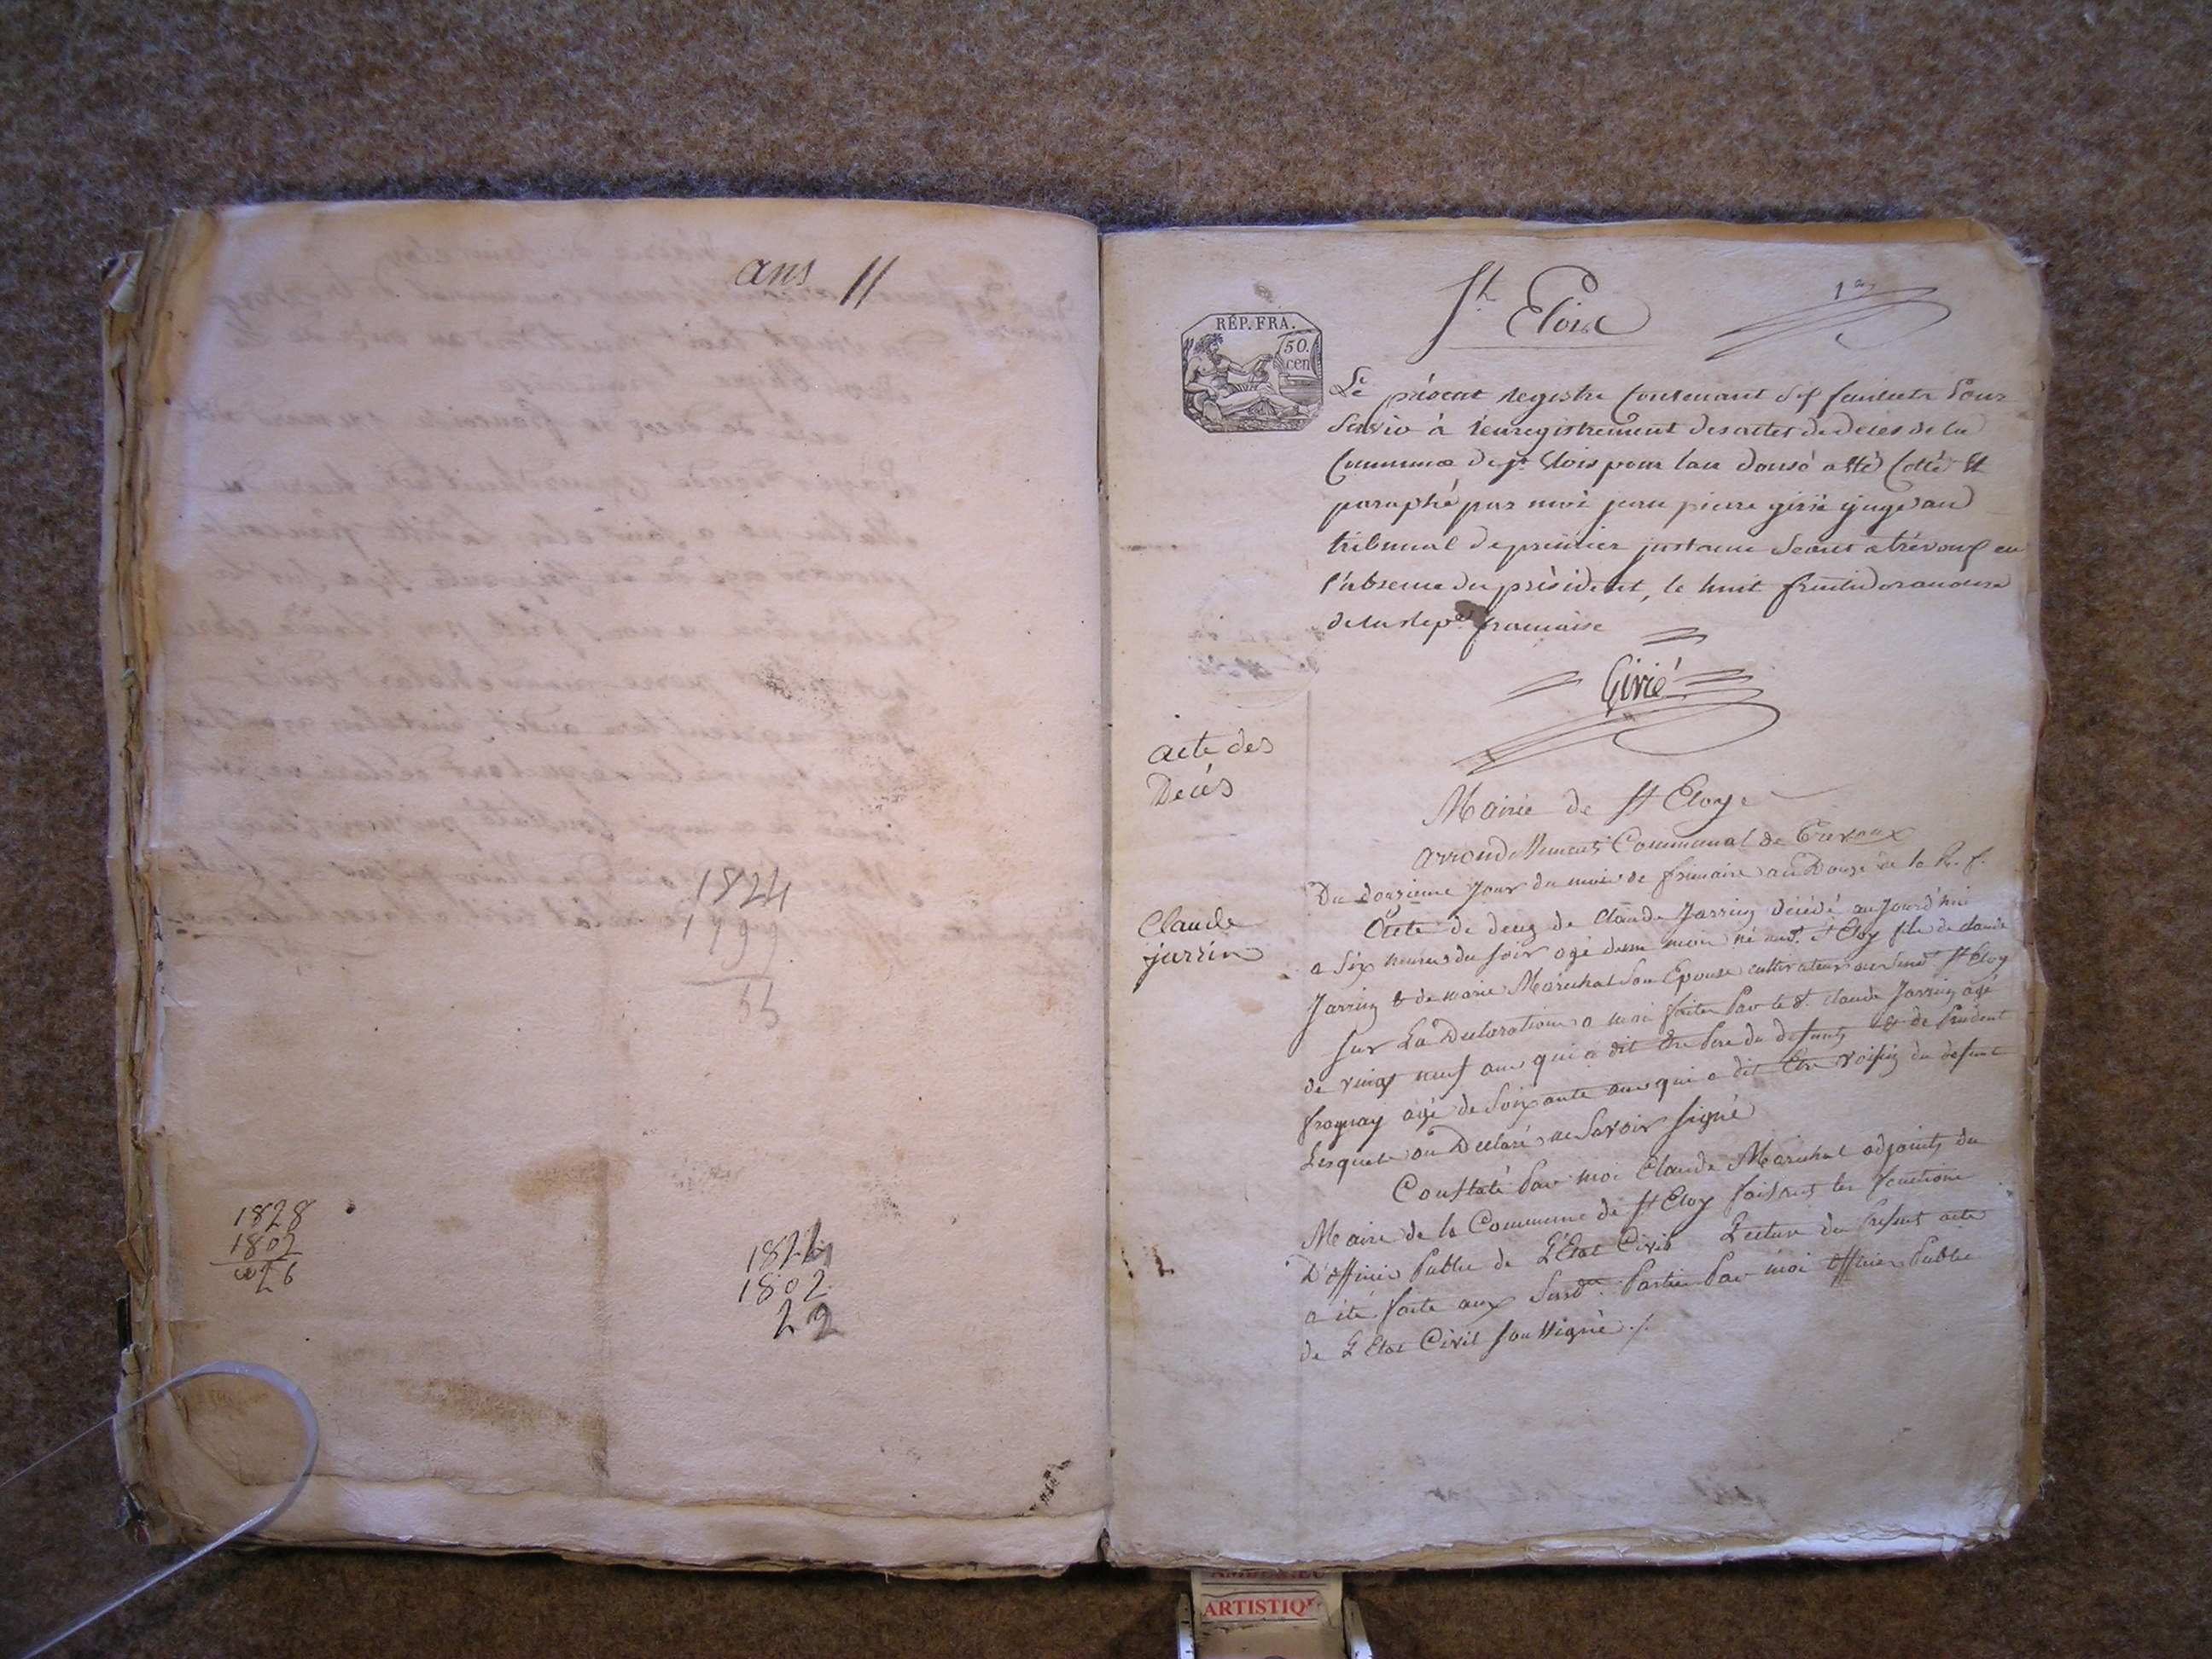 ans 11
1824
1799
1828
1802
26
1824
1802
22
St. Eloix
1er
RÉP. FRA.
50.
cen
Le présent registre contenant six feuillets pour
servir à l'enregistrement des actes de décès de la
Commune de St Elois pour l'an douse a été cotté et
paraphé par moi jean pierre girié juge au
tribunal de première instance séant a trévoux en
l'absence du président, le huit fructidor an onze
de la rep.e française
Girié
acte des
Decés
Mairie de St Eloye
Arrondissement Communal de Trevoux
Du douzieme jour du mois de frimaire an Douze de la R. f.
Claude
jarrin
Acte de decez de Claude Jarrin décédé aujourd'hui
a six heures du soir agé dun mois né aud. St Eloy fils de claude
Jarrin & de marie Maréchal son Epouse cultivateur au St Eloy
sur La Declaration a moi faite Par le d. claude Jarrin agé
de vingt neuf ans qui a dit être Pere du defunt & de
agé de soixante ans qui a dit Etre voisin du defunt
Lesquels on Déclaré ne savoir signé
Constaté Par moi Claude Maréchal adjoint du
Maire de la Commune de St Eloy faisant les fonctions
D'officier Public de L'Etat Civil Lecture du Présent acte
a été faite aux Parties Par moi officier Public
de L'Etat Civil soussigné ./.
ARTISTIQ